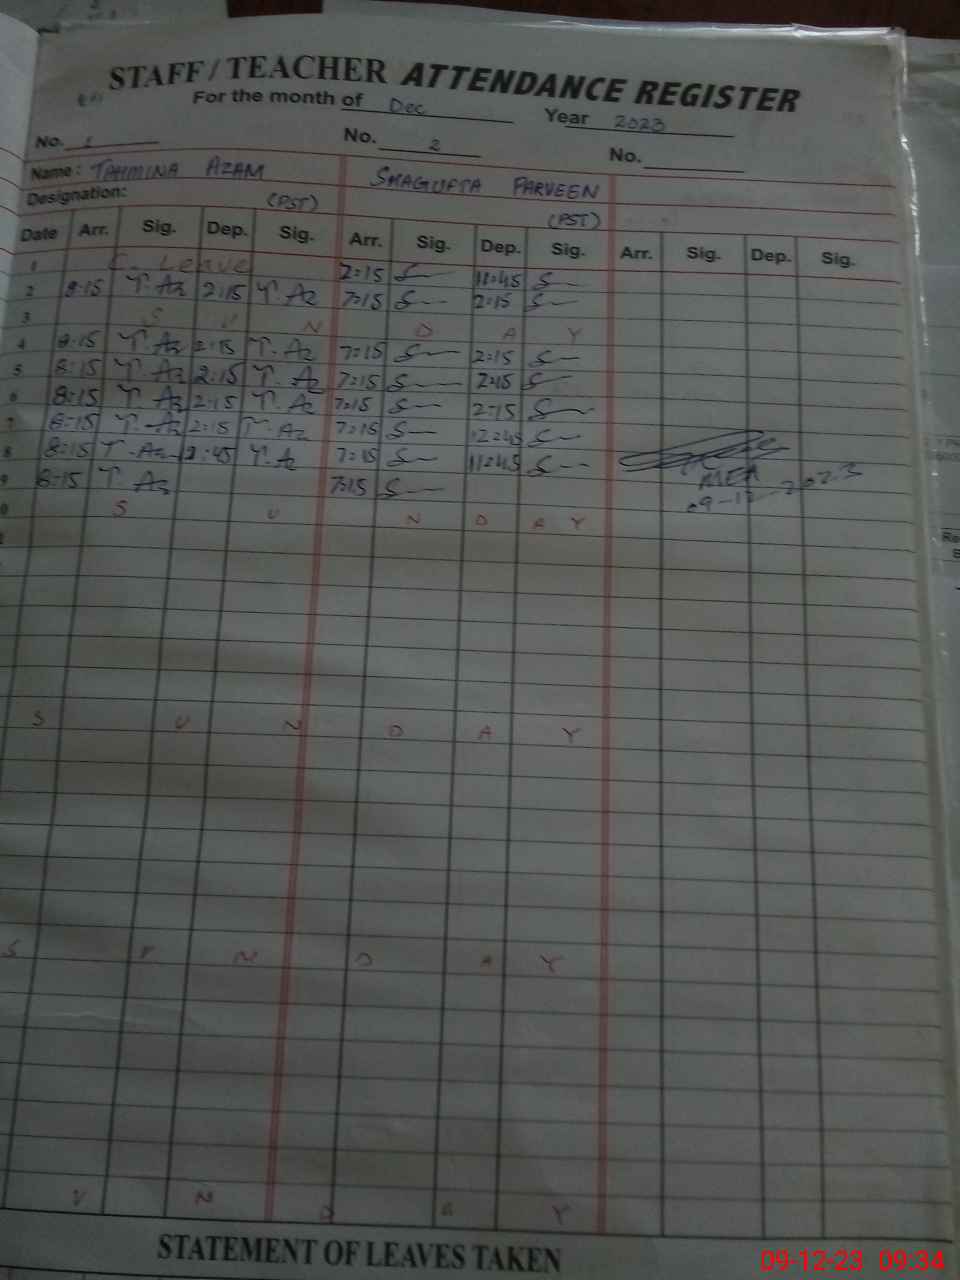 STAFF / TEACHER ATTENDANCE REGISTER
For the month of Dec Year 2023
No. 1 No. 2 No.
Name: TAHMINA AZAM SHAGUFTA PARVEEN
Designation: (PST) (PST)
Date Arr. Sig. Dep. Sig. Arr. Sig. Dep. Sig. Arr. Sig. Dep. Sig.
1 C. Leave 7:15 S 11:45 S
2 8:15 T. Az 2:15 T. Az 7:15 S 2:15 S
3 S U N D A Y
4 8:15 T. Az 2:15 T. Az 7:15 S 2:15 S
5 8:15 T. Az 2:15 T. Az 7:15 S 2:15 S
6 8:15 T. Az 2:15 T. Az 7:15 S 2:15 S
7 8:15 T. Az 2:15 T. Az 7:15 S 12:45 S
8 8:15 T. Az :45 T. Az 7:15 S 11:45 S
9 8:15 T. Az 7:15 S MEA
09-12-2023
0 S U N D A Y
S U N D A Y
S U N D A Y
U N D A Y
STATEMENT OF LEAVES TAKEN
09-12-23 09:34